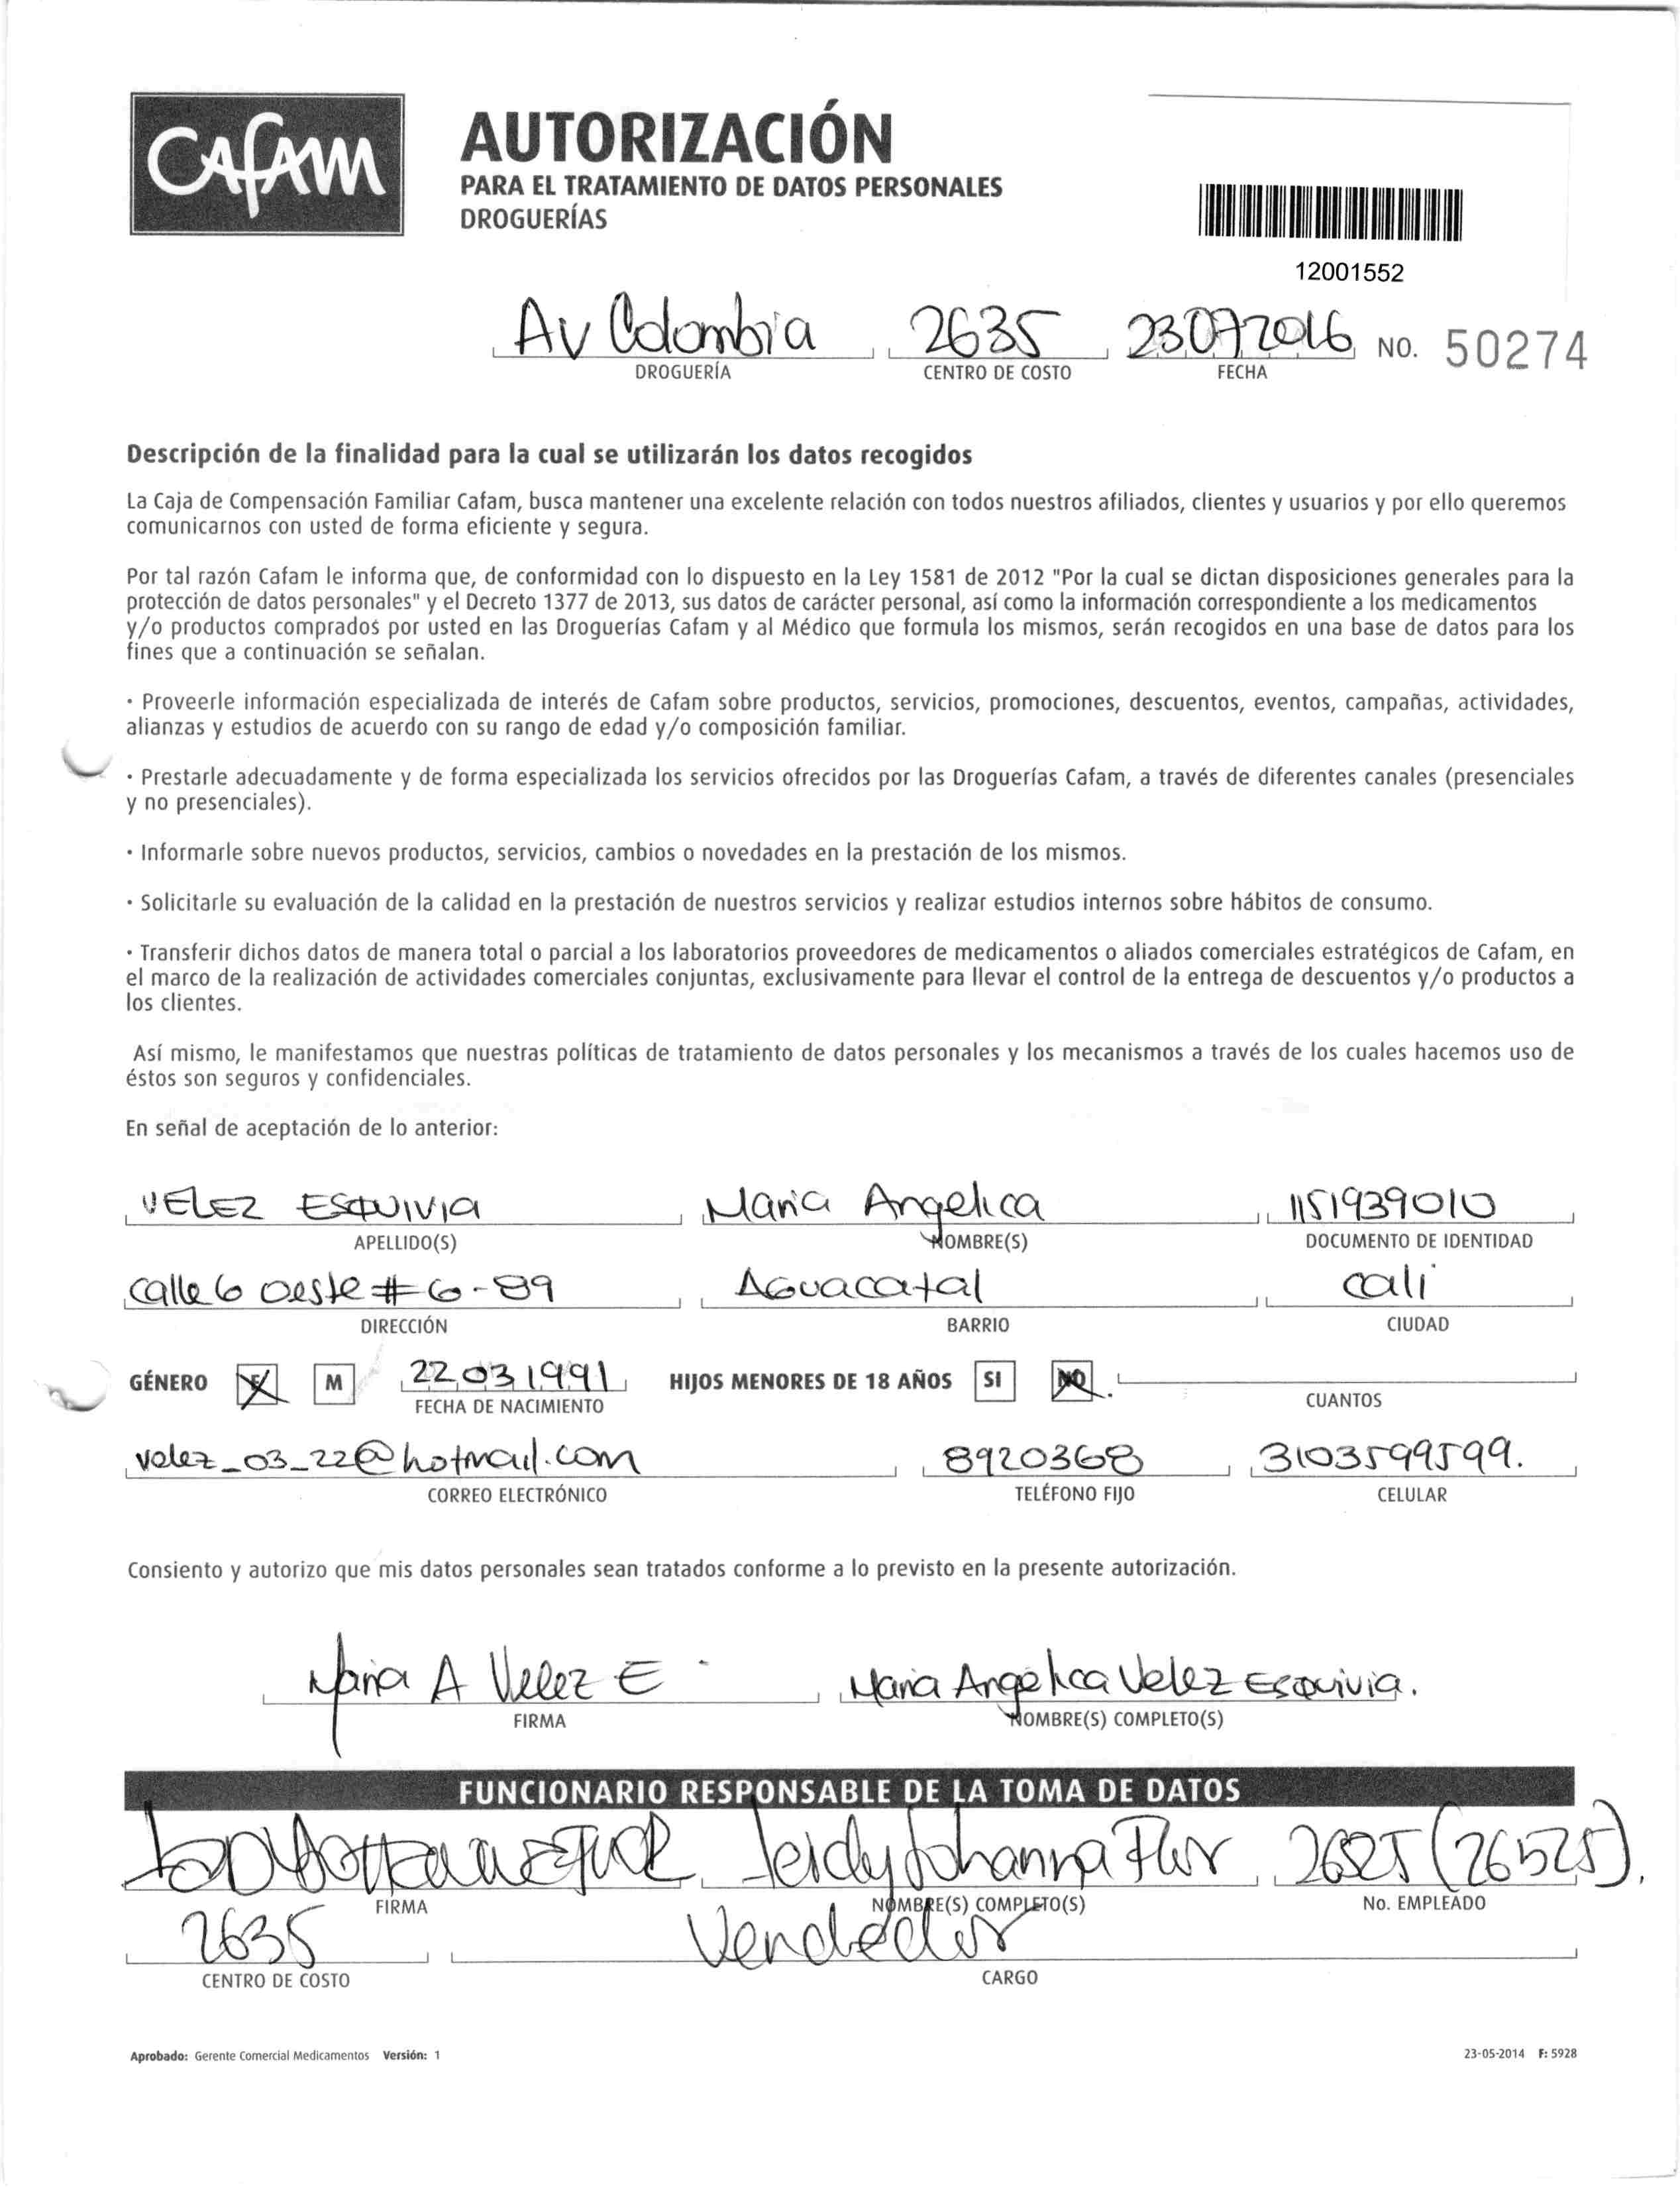 Cafam
AUTORIZACIÓN
PARA EL TRATAMIENTO DE DATOS PERSONALES
DROGUERÍAS
12001552
Av Colombia 2635 23072016 NO. 50274
DROGUERÍA CENTRO DE COSTO FECHA
Descripción de la finalidad para la cual se utilizarán los datos recogidos
La Caja de Compensación Familiar Cafam, busca mantener una excelente relación con todos nuestros afiliados, clientes y usuarios y por ello queremos
comunicarnos con usted de forma eficiente y segura.
Por tal razón Cafam le informa que, de conformidad con lo dispuesto en la Ley 1581 de 2012 "Por la cual se dictan disposiciones generales para la
protección de datos personales" y el Decreto 1377 de 2013, sus datos de carácter personal, así como la información correspondiente a los medicamentos
y/o productos comprados por usted en las Droguerías Cafam y al Médico que formula los mismos, serán recogidos en una base de datos para los
fines que a continuación se señalan.
· Proveerle información especializada de interés de Cafam sobre productos, servicios, promociones, descuentos, eventos, campañas, actividades,
alianzas y estudios de acuerdo con su rango de edad y/o composición familiar.
· Prestarle adecuadamente y de forma especializada los servicios ofrecidos por las Droguerías Cafam, a través de diferentes canales (presenciales
y no presenciales).
· Informarle sobre nuevos productos, servicios, cambios o novedades en la prestación de los mismos.
· Solicitarle su evaluación de la calidad en la prestación de nuestros servicios y realizar estudios internos sobre hábitos de consumo.
· Transferir dichos datos de manera total o parcial a los laboratorios proveedores de medicamentos o aliados comerciales estratégicos de Cafam, en
el marco de la realización de actividades comerciales conjuntas, exclusivamente para llevar el control de la entrega de descuentos y/o productos a
los clientes.
Así mismo, le manifestamos que nuestras políticas de tratamiento de datos personales y los mecanismos a través de los cuales hacemos uso de
éstos son seguros y confidenciales.
En señal de aceptación de lo anterior:
VELEZ ESQUIVIA Maria Angelica 1151939010
APELLIDO(S) NOMBRE(S) DOCUMENTO DE IDENTIDAD
calle 6 oeste # 6-89 Aguacatal cali
DIRECCIÓN BARRIO CIUDAD
GÉNERO F M 22031991 HIJOS MENORES DE 18 AÑOS SI NO
FECHA DE NACIMIENTO CUANTOS
velez_03_22@hotmail.com 8920368 3103599599.
CORREO ELECTRÓNICO TELÉFONO FIJO CELULAR
Consiento y autorizo que mis datos personales sean tratados conforme a lo previsto en la presente autorización.
Maria A Velez E Maria Angelica Velez Esquivia.
FIRMA NOMBRE(S) COMPLETO(S)
FUNCIONARIO RESPONSABLE DE LA TOMA DE DATOS
Leidy Johanna Flor (26525).
FIRMA NOMBRE(S) COMPLETO(S) No. EMPLEADO
2635 Vendedor
CENTRO DE COSTO CARGO
Aprobado: Gerente Comercial Medicamentos Versión: 1 23-05-2014 F: 5928